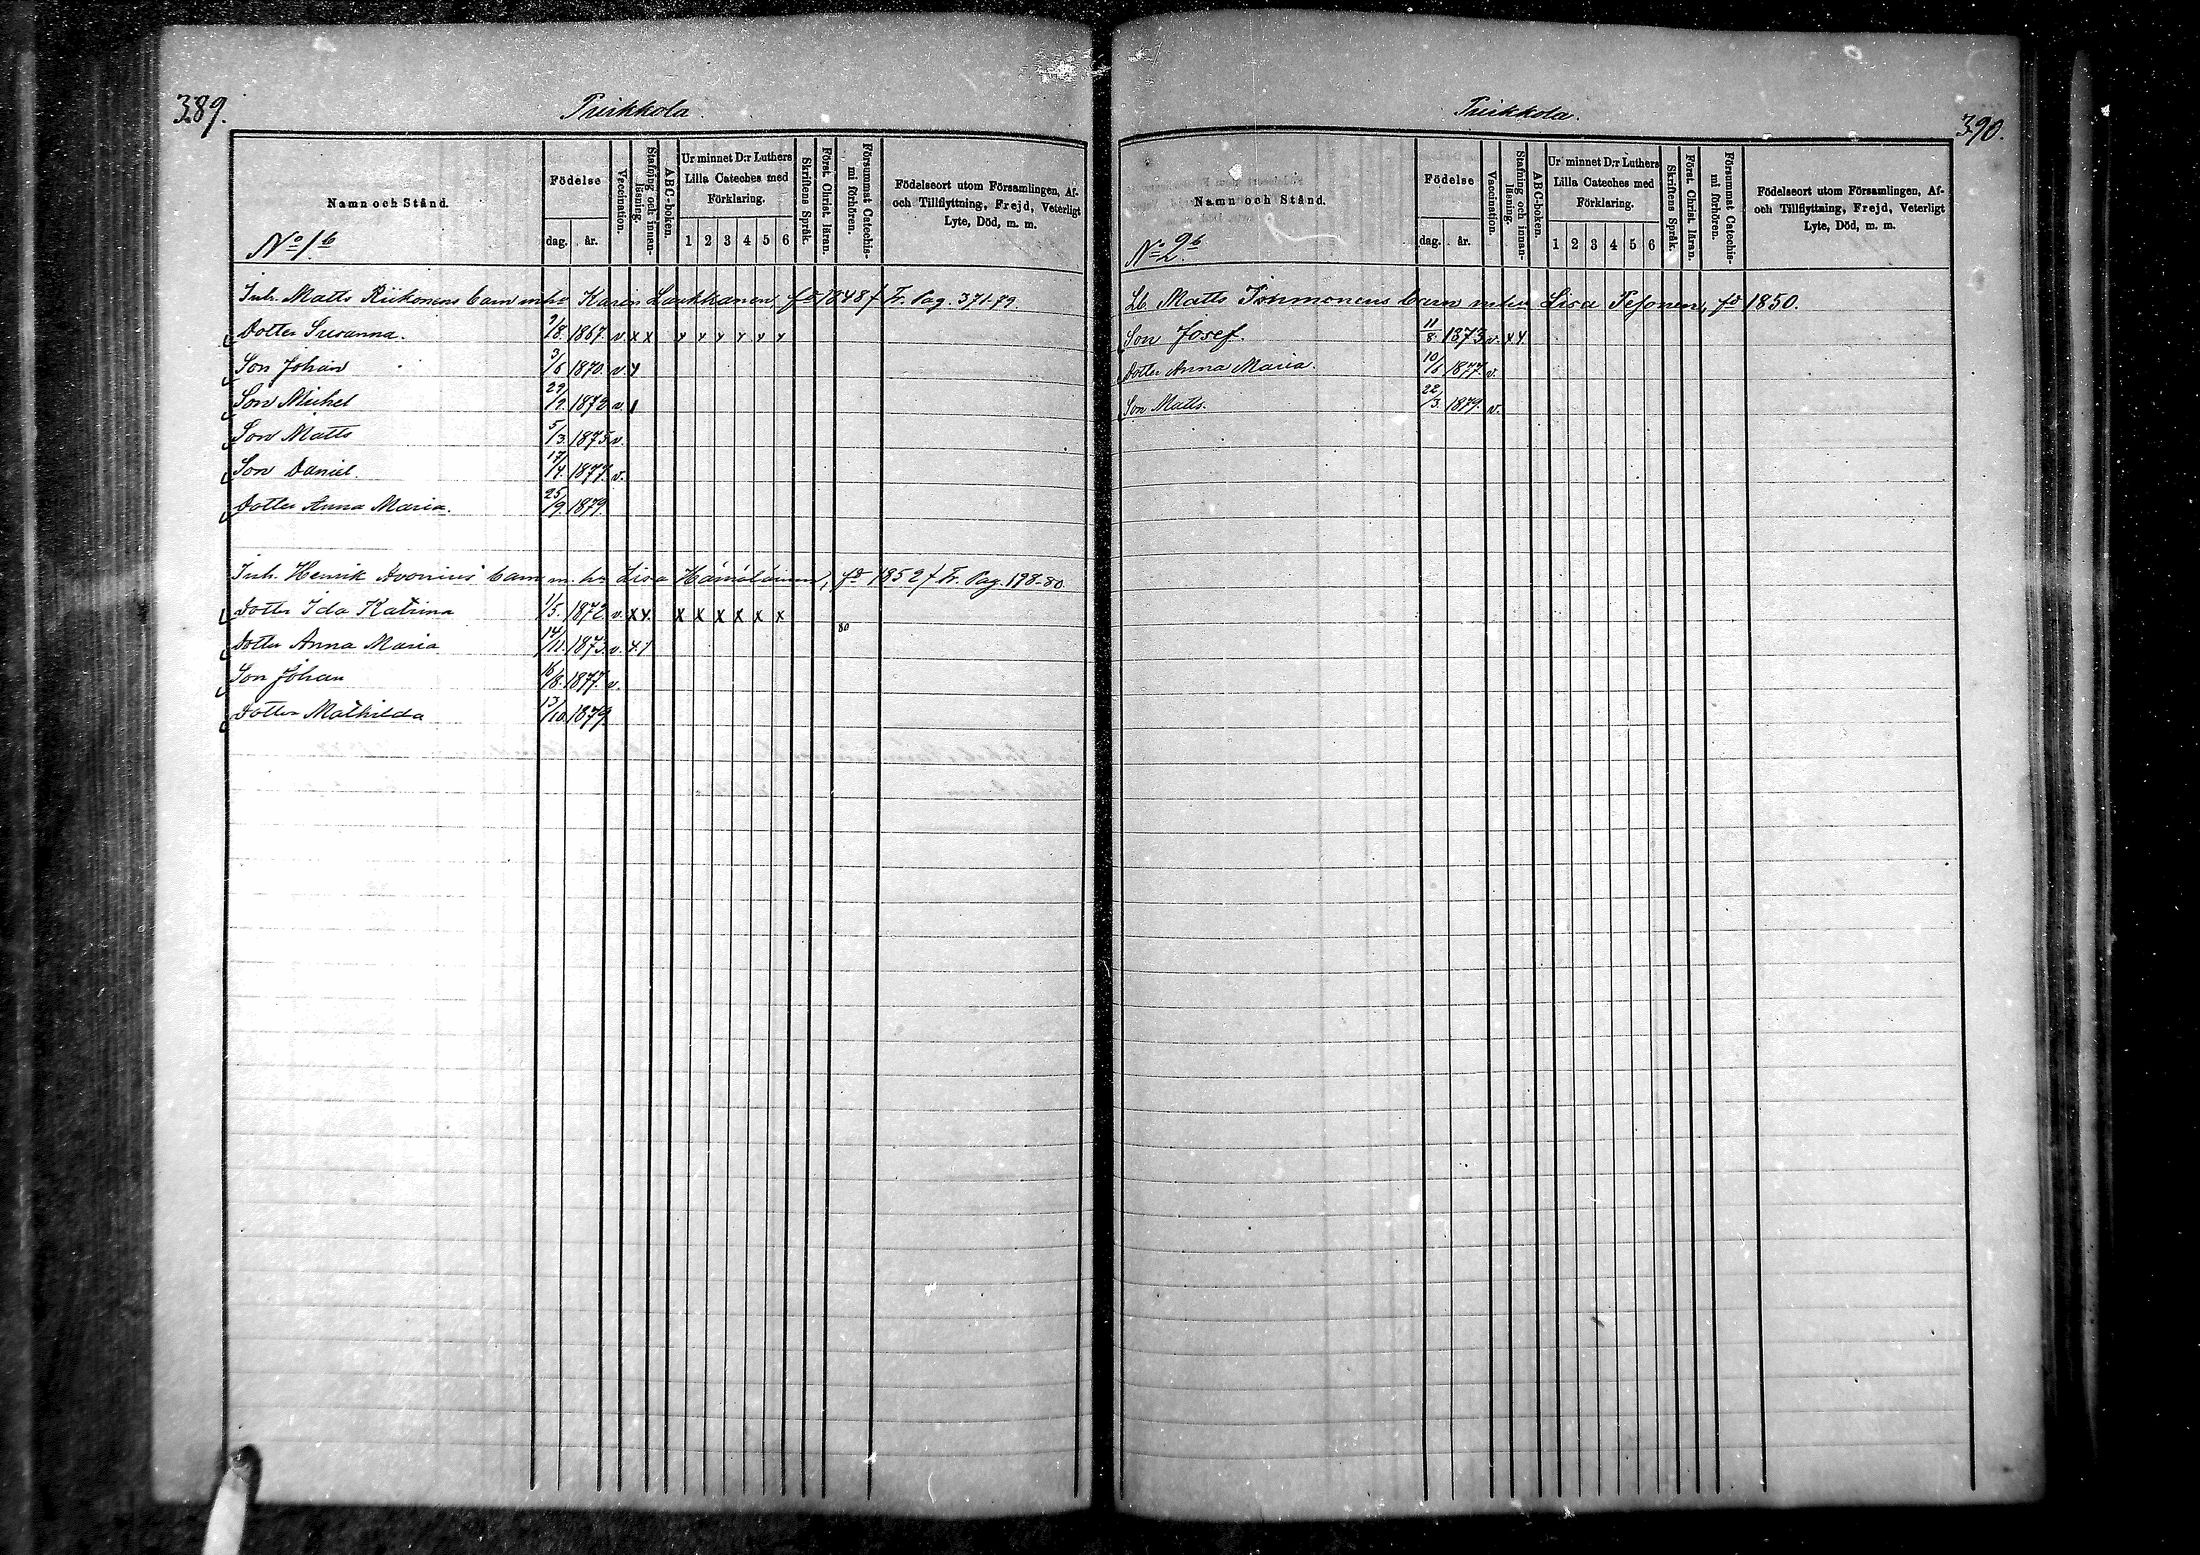 389.
Puikkola.
Namn och Stånd.
Födelse
dag. år.
Vaccination.
Stafning och innanläsning.
ABC-boken.
Ur minnet D:r Luthers Lilla Cateches med Förklaring.
1 2 3 4 5 6
Skriftens Språk.
Först. Christ. läran.
Försummat Catechismi förhören.
Födelseort utom Församlingen, Af-
och Tillflyttning, Frejd, Veterligt
Lyte, Död, m. m.
No 1.b
Inh. Matts Riikonens barn m. hu Karin Laukkanen, fd 1848 f Fr. Pag. 371-79.
Dotter Susanna. 2/8. 1867. v. x x y y y y y y
Son Johan 3/6 1870. v. y
Son Michel 29/12. 1872 v.
Son Matts 5/3. 1875 v.
Son Daniel. 17/4. 1877. v.
Dotter Anna Maria. 25/9. 1879.
Inh. Henrik Avonius' barn m. hu Lisa, fd 1852 f Fr. Pag. 198-80
Dotter Ida Katrina 1/5. 1872. v. x y. x x x x x x
80
Dotter Anna Maria 14/11. 1873. v. y. y
Son Johan 16/8. 1877. v.
Dotter Mathilda 13/10. 1879.
390.
Puikkola.
Namn och Stånd.
Födelse
dag. år.
Vaccination.
Stafning och innanläsning.
ABC-boken.
Ur minnet D:r Luthers Lilla Cateches med Förklaring.
1 2 3 4 5 6
Skriftens Språk.
Först. Christ. läran.
Försummat Catechismi förhören.
Födelseort utom Församlingen, Af-
och Tillflyttning, Frejd, Veterligt
Lyte, Död, m. m.
No 2.b
Lb. Matts Ihmonens barn m. hu Lisa Pesonen, fd 1850.
Son Josef. 11/8. 1873 v. x y
Dotter Anna Maria. 10/6 1877. v.
Son Matts. 22/3. 1879. v.